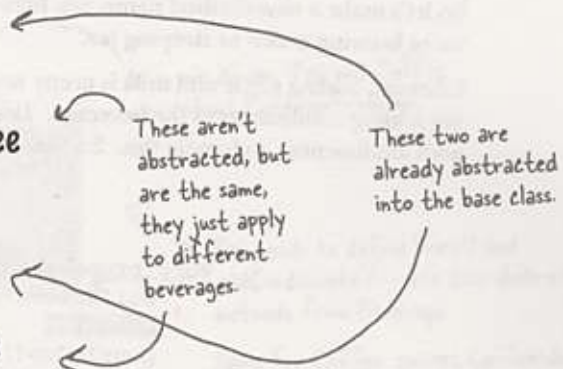 ee
These aren't
abstracted, but
are the same,
they just apply
to different
beverages.
These two are
already abstracted
into the base class.